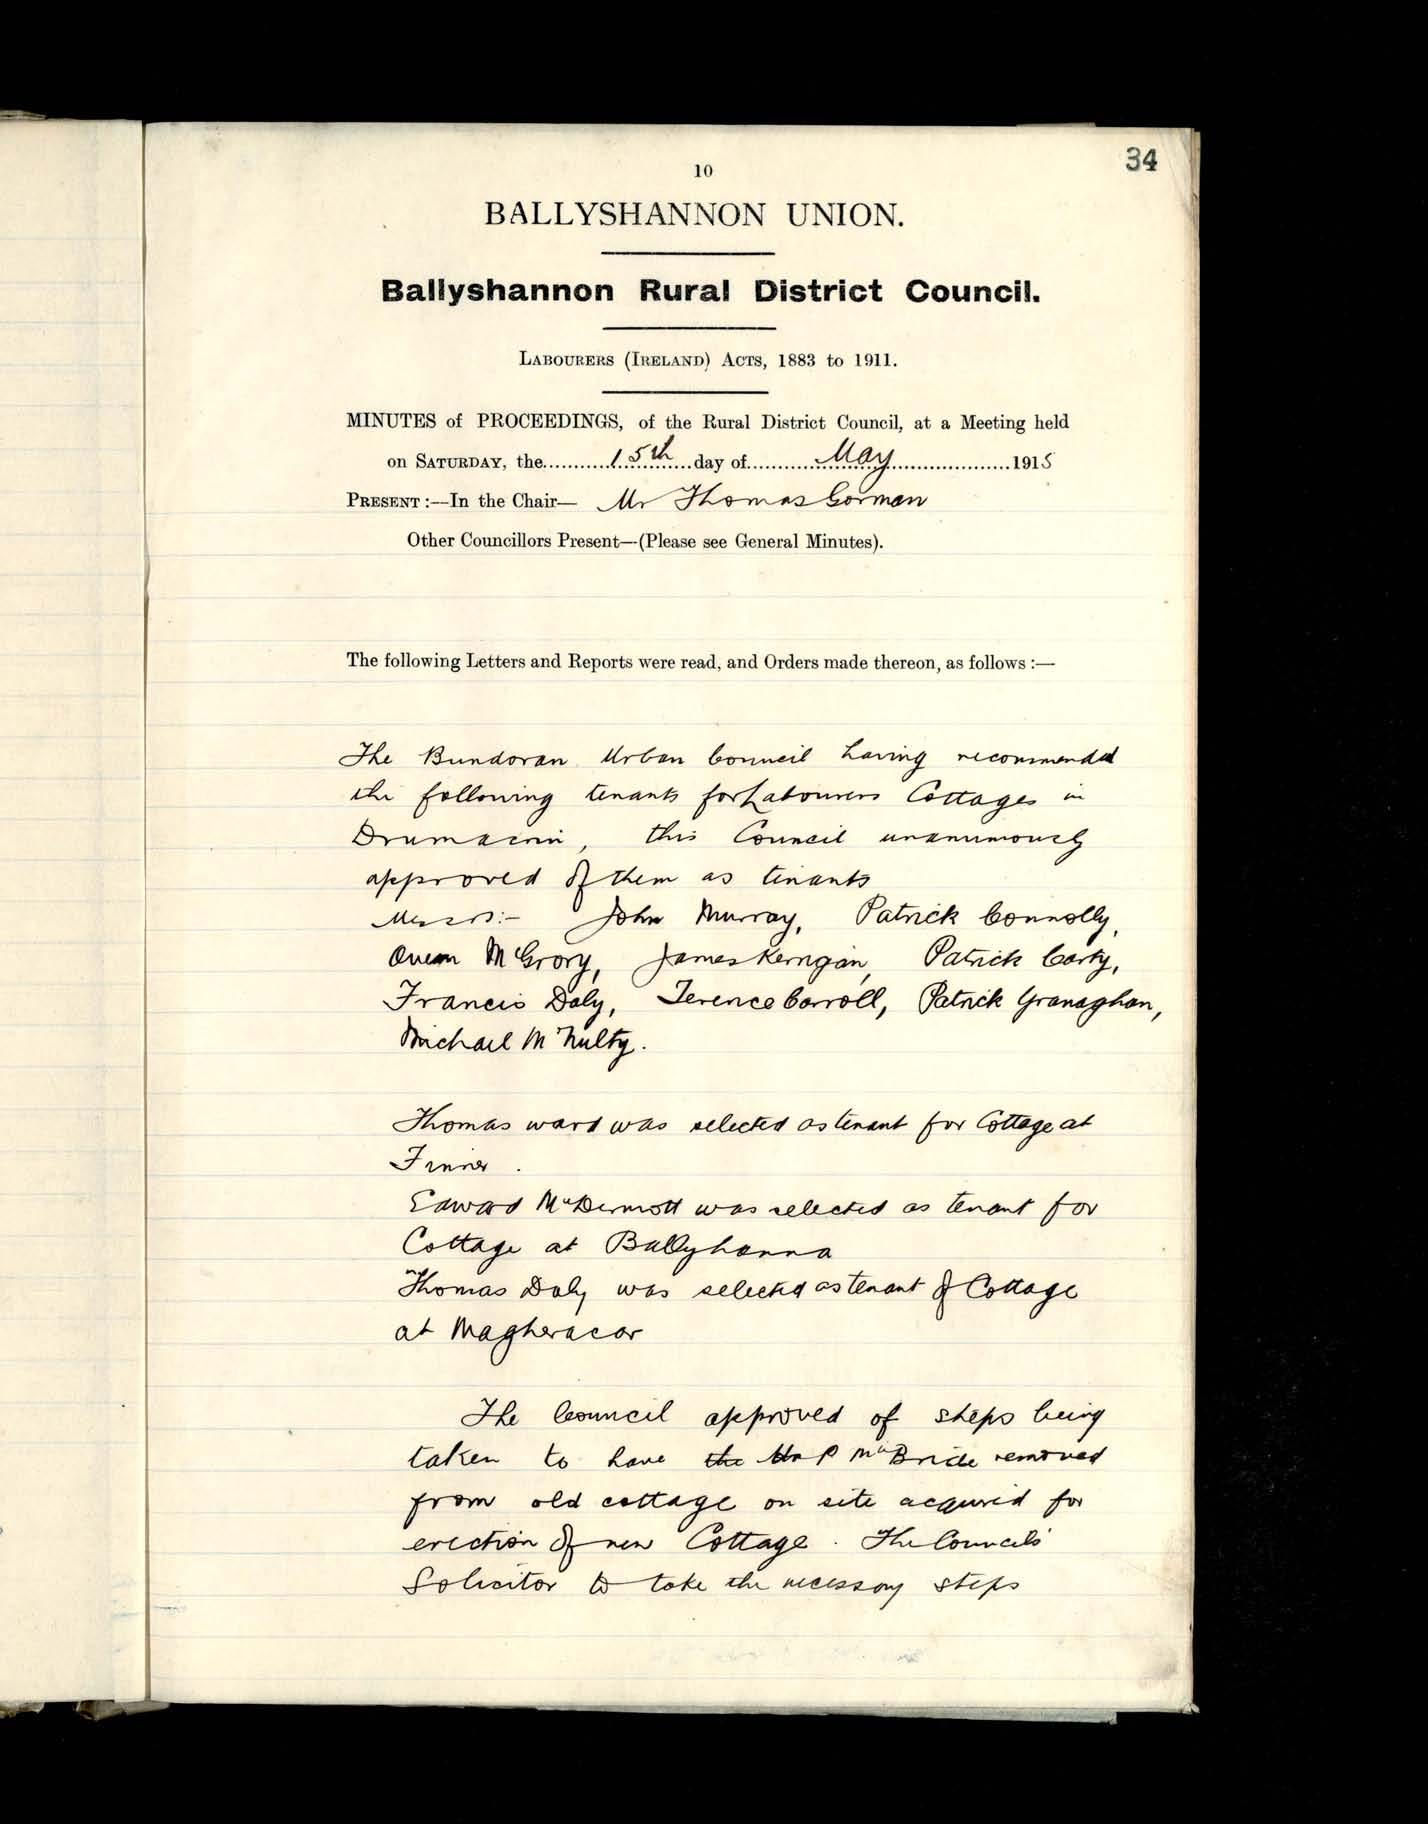 34
10
BALLYSHANNON UNION.
Ballyshannon Rural District Council.
LABOURERS (IRELAND) ACTS, 1883 to 1911.
MINUTES of PROCEEDINGS, of the Rural District Council, at a Meeting held
on SATURDAY, the 15th day of May 1915
PRESENT :—In the Chair— Mr Thomas Gorman
Other Councillors Present—(Please see General Minutes).
The following Letters and Reports were read, and Orders made thereon, as follows :—
The Bundoran Urban Council having recommended
the following tenants for Labourers Cottages in
Drumacrin, this Council unanimously
approved of them as tenants
Messrs:- John Murray, Patrick Connolly,
Owen McGrory, James Kerrigan, Patrick Carty,
Francis Daly, Terence Carroll, Patrick Granaghan,
Michael McNulty.
Thomas ward was selected as tenant for Cottage at
Finner.
Edward McDermott was selected as tenant for
Cottage at Ballyhanna
Thomas Daly was selected as tenant of Cottage
at Magheracar
The Council approved of steps being
taken to have the Mr P McBride removed
from old cottage on site acquired for
erection of new Cottage. The Council's
Solicitor to take the necessary steps